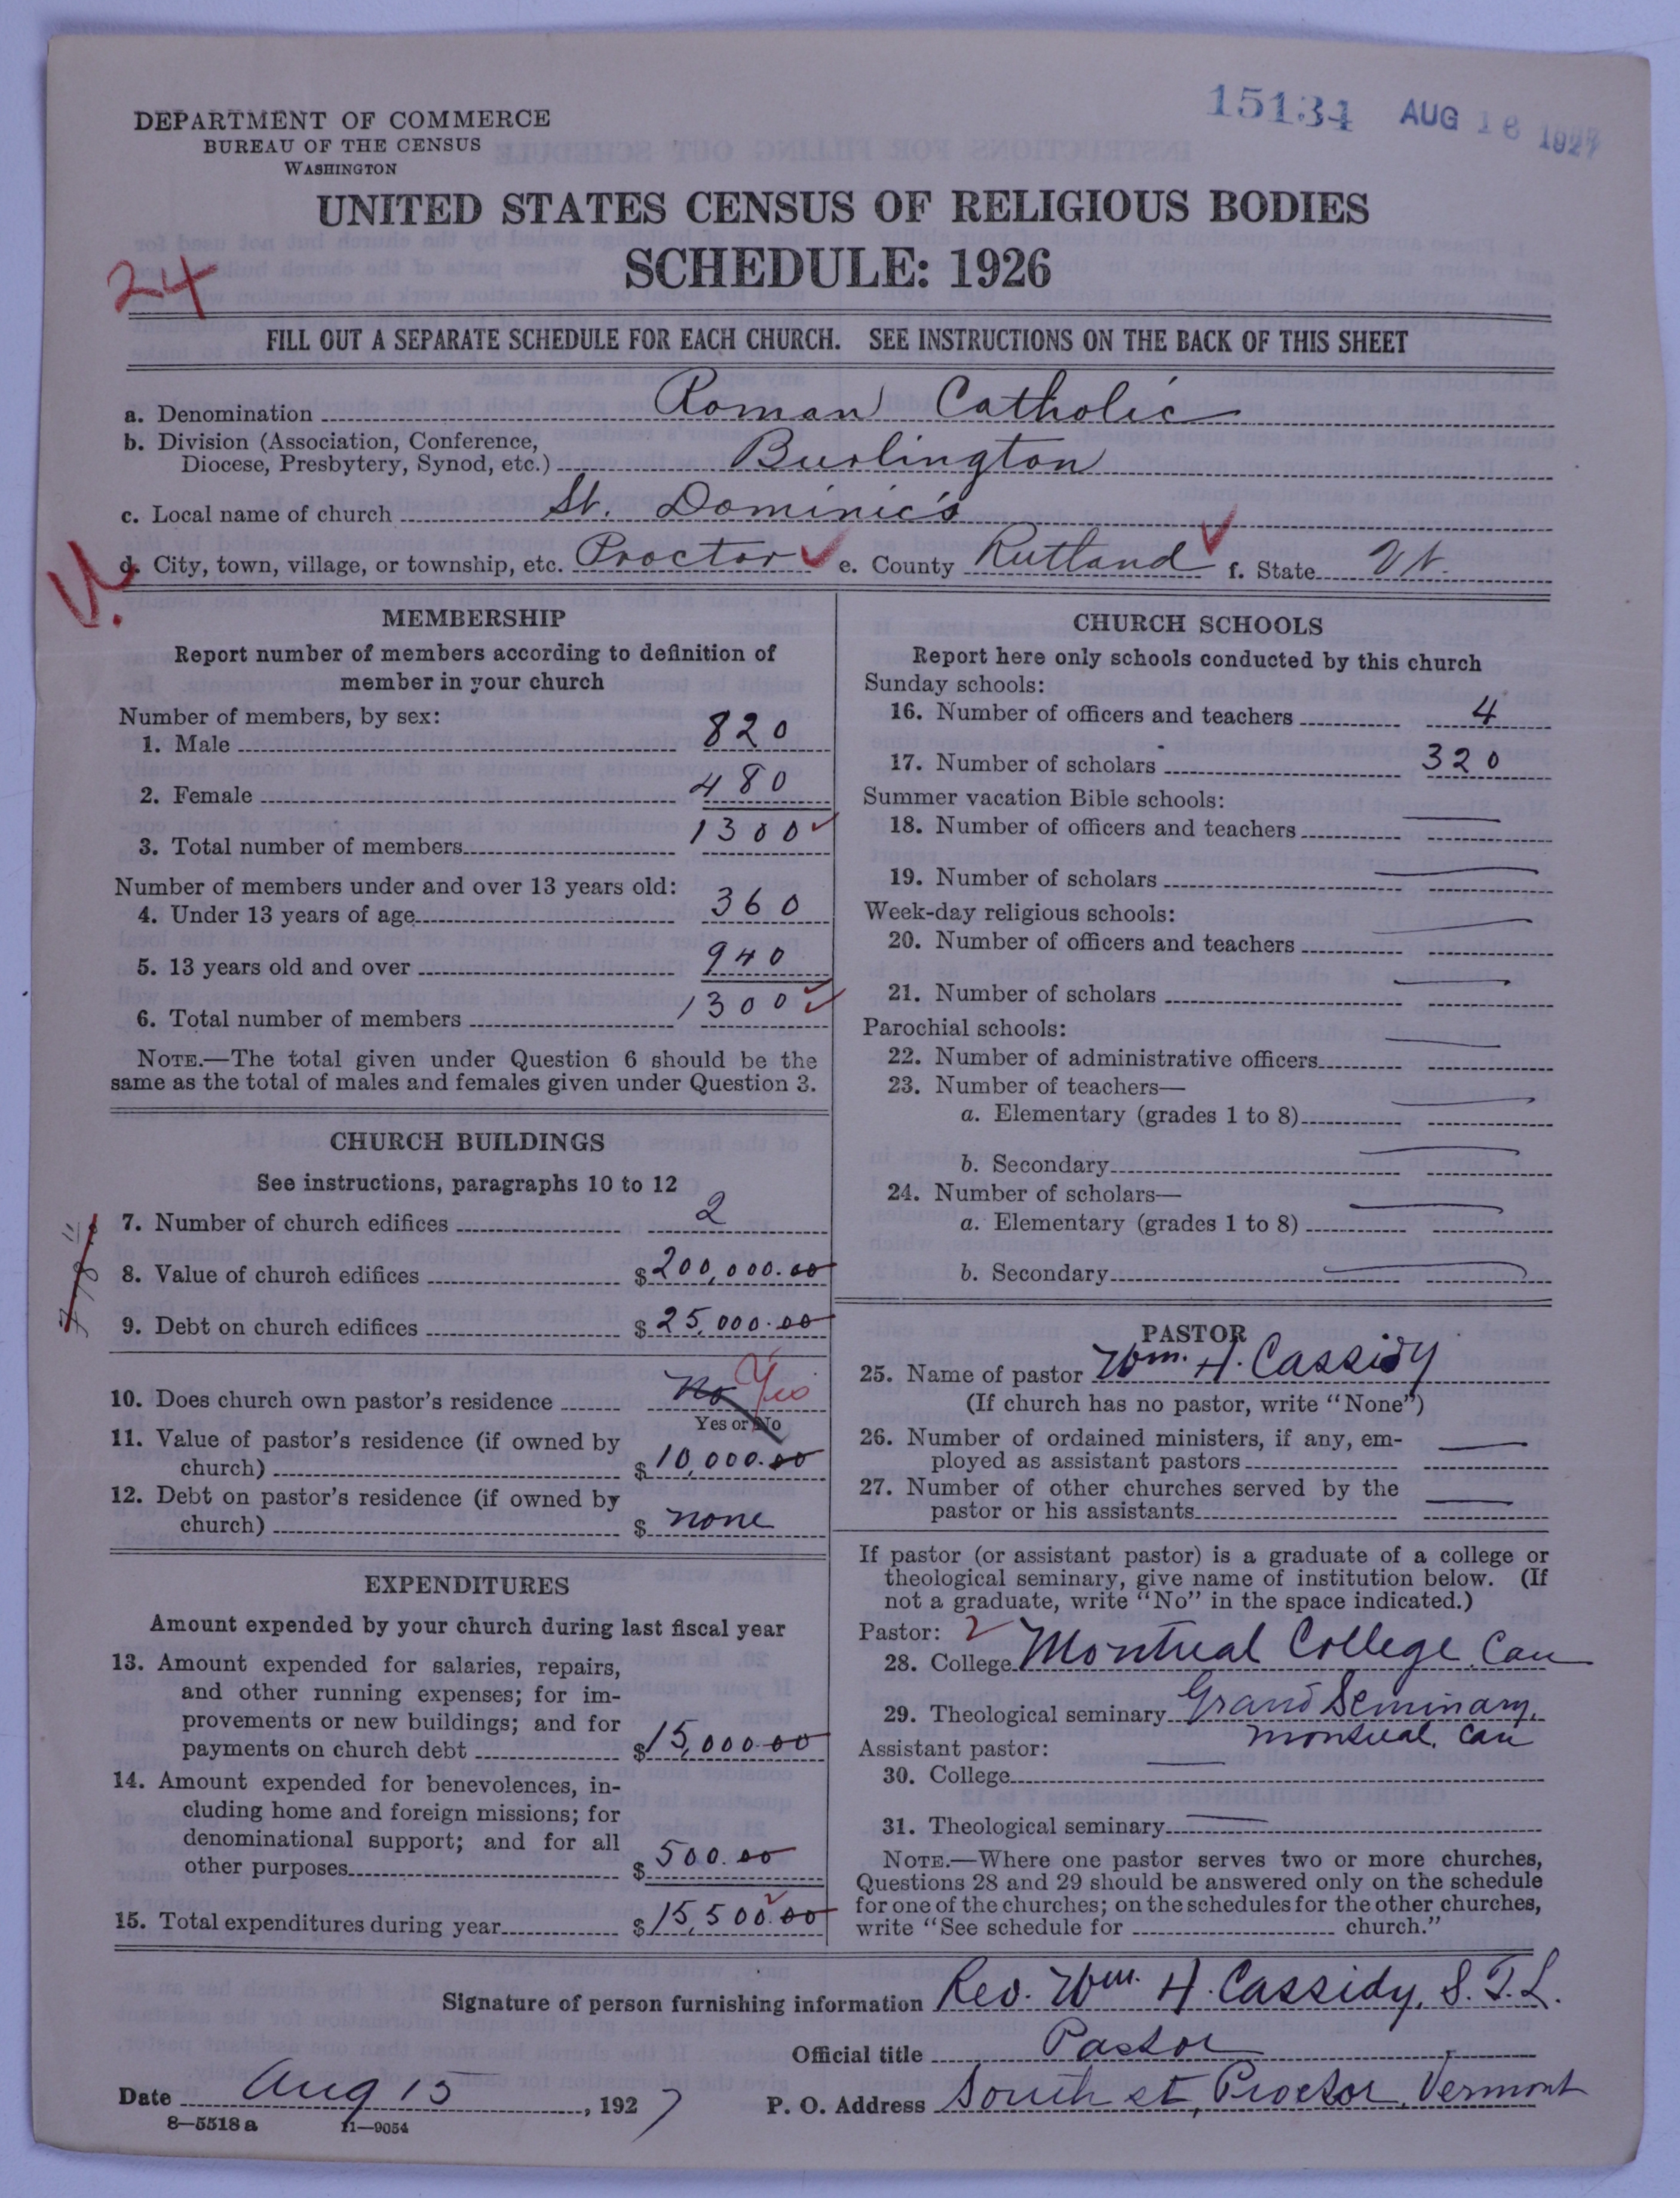 15134 AUG 16 1927
DEPARTMENT OF COMMERCE
BUREAU OF THE CENSUS
WASHINGTON
UNITED STATES CENSUS OF RELIGIOUS BODIES
SCHEDULE: 1926
24
FILL OUT A SEPARATE SCHEDULE FOR EACH CHURCH. SEE INSTRUCTIONS ON THE BACK OF THIS SHEET
a. Denomination Roman Catholic
b. Division (Association, Conference,
Diocese, Presbytery, Synod, etc.) Burlington
c. Local name of church St. Dominic's
d. City, town, village, or township, etc. Proctor e. County Rutland f. State Vt.
MEMBERSHIP
Report number of members according to definition of
member in your church
Number of members, by sex:
1. Male 820
2. Female 480
3. Total number of members 1300
Number of members under and over 13 years old:
4. Under 13 years of age 360
5. 13 years old and over 940
6. Total number of members 1300
NOTE.—The total given under Question 6 should be the
same as the total of males and females given under Question 3.
CHURCH BUILDINGS
See instructions, paragraphs 10 to 12
7. Number of church edifices 2
8. Value of church edifices $200,000.00
9. Debt on church edifices $25,000.00
10. Does church own pastor's residence No Yes
Yes or No
11. Value of pastor's residence (if owned by
church) $10,000.00
12. Debt on pastor's residence (if owned by
church) $ none
EXPENDITURES
Amount expended by your church during last fiscal year
13. Amount expended for salaries, repairs,
and other running expenses; for im-
provements or new buildings; and for
payments on church debt $15,000.00
14. Amount expended for benevolences, in-
cluding home and foreign missions; for
denominational support; and for all
other purposes $500.00
15. Total expenditures during year $15,500.00
CHURCH SCHOOLS
Report here only schools conducted by this church
Sunday schools:
16. Number of officers and teachers 4
17. Number of scholars 320
Summer vacation Bible schools:
18. Number of officers and teachers
19. Number of scholars
Week-day religious schools:
20. Number of officers and teachers
21. Number of scholars
Parochial schools:
22. Number of administrative officers
23. Number of teachers—
a. Elementary (grades 1 to 8)
b. Secondary
24. Number of scholars—
a. Elementary (grades 1 to 8)
b. Secondary
PASTOR
25. Name of pastor Wm. H. Cassidy
(If church has no pastor, write "None")
26. Number of ordained ministers, if any, em-
ployed as assistant pastors
27. Number of other churches served by the
pastor or his assistants
If pastor (or assistant pastor) is a graduate of a college or
theological seminary, give name of institution below. (If
not a graduate, write "No" in the space indicated.)
Pastor: 2
28. College Montreal College Can
29. Theological seminary Grand Seminary,
Montreal, Can
Assistant pastor:
30. College
31. Theological seminary
NOTE.—Where one pastor serves two or more churches,
Questions 28 and 29 should be answered only on the schedule
for one of the churches; on the schedules for the other churches,
write "See schedule for church."
Signature of person furnishing information Rev. Wm. H. Cassidy, S.T.L.
Official title Pastor
Date Aug 15, 1927 P. O. Address South st, Proctor, Vermont
8—5518a 11—9054